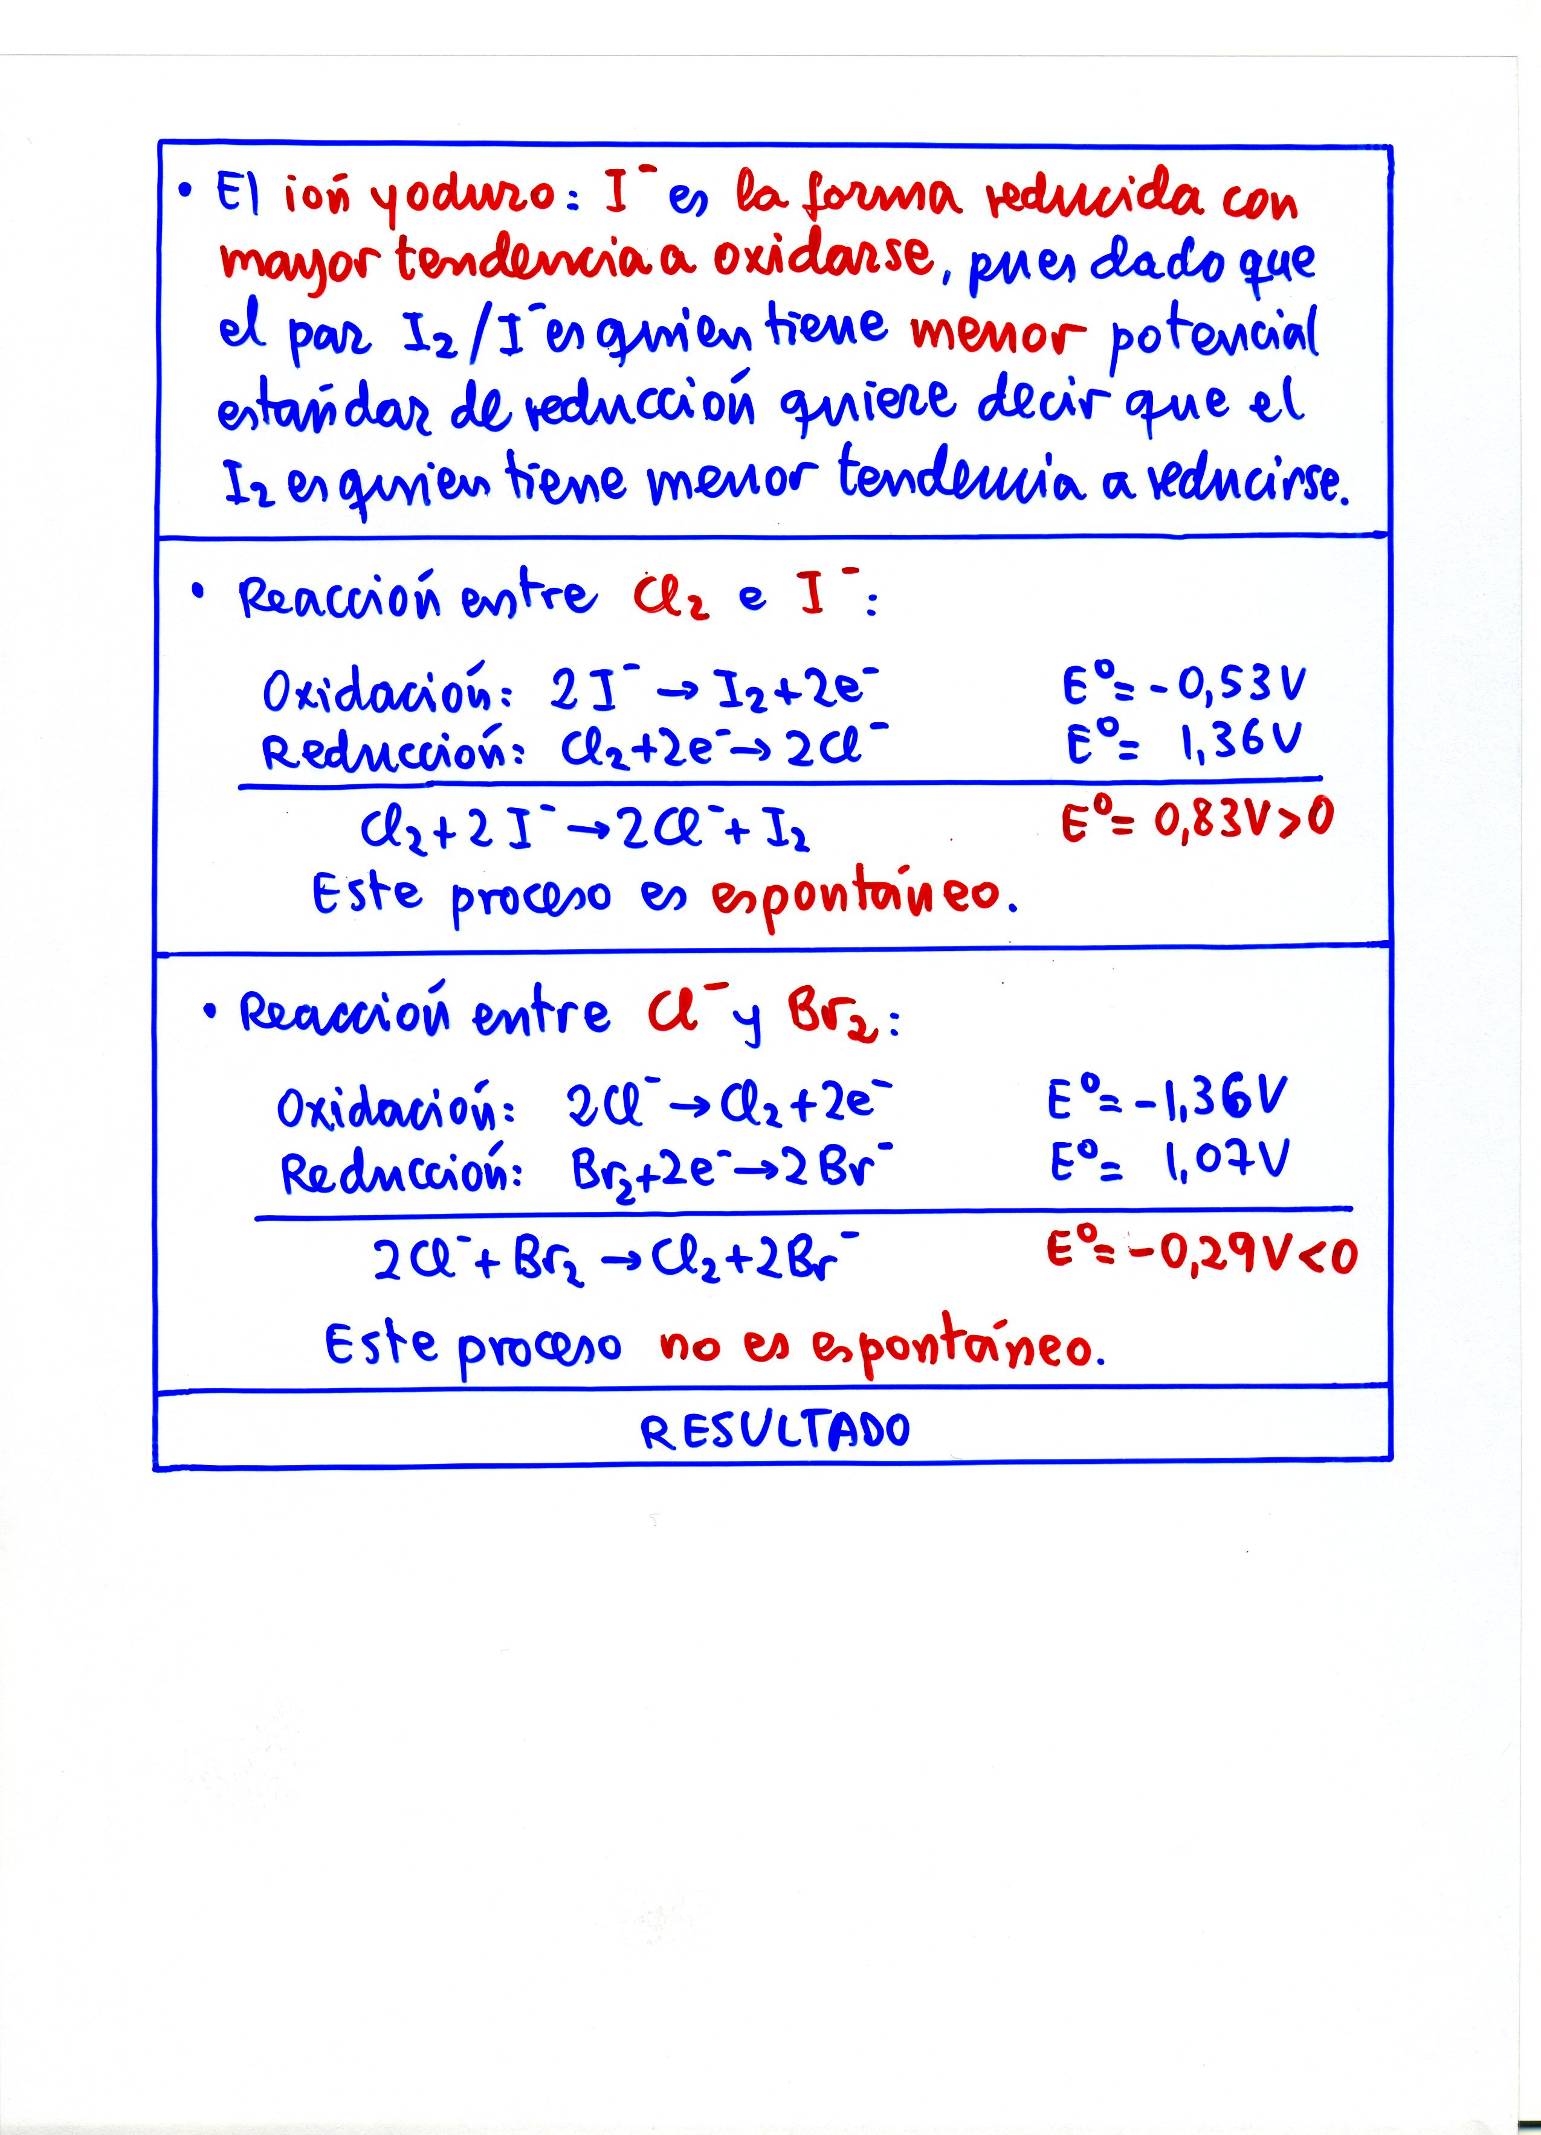 • El ión yoduro: I⁻ es la forma reducida con
mayor tendencia a oxidarse, pues dado que
el par I₂/I⁻ es quien tiene menor potencial
estándar de reducción quiere decir que el
I₂ es quien tiene menor tendencia a reducirse.
• Reacción entre Cl₂ e I⁻:
Oxidación: 2I⁻ → I₂+2e⁻ E⁰= -0,53V
Reducción: Cl₂+2e⁻→ 2Cl⁻ E⁰= 1,36V
Cl₂+2I⁻→2Cl⁻+I₂ E⁰= 0,83V>0
Este proceso es espontáneo.
• Reacción entre Cl⁻ y Br₂:
Oxidación: 2Cl⁻→Cl₂+2e⁻ E⁰= -1,36V
Reducción: Br₂+2e⁻→2Br⁻ E⁰= 1,07V
2Cl⁻+Br₂→Cl₂+2Br⁻ E⁰= -0,29V<0
Este proceso no es espontáneo.
RESULTADO